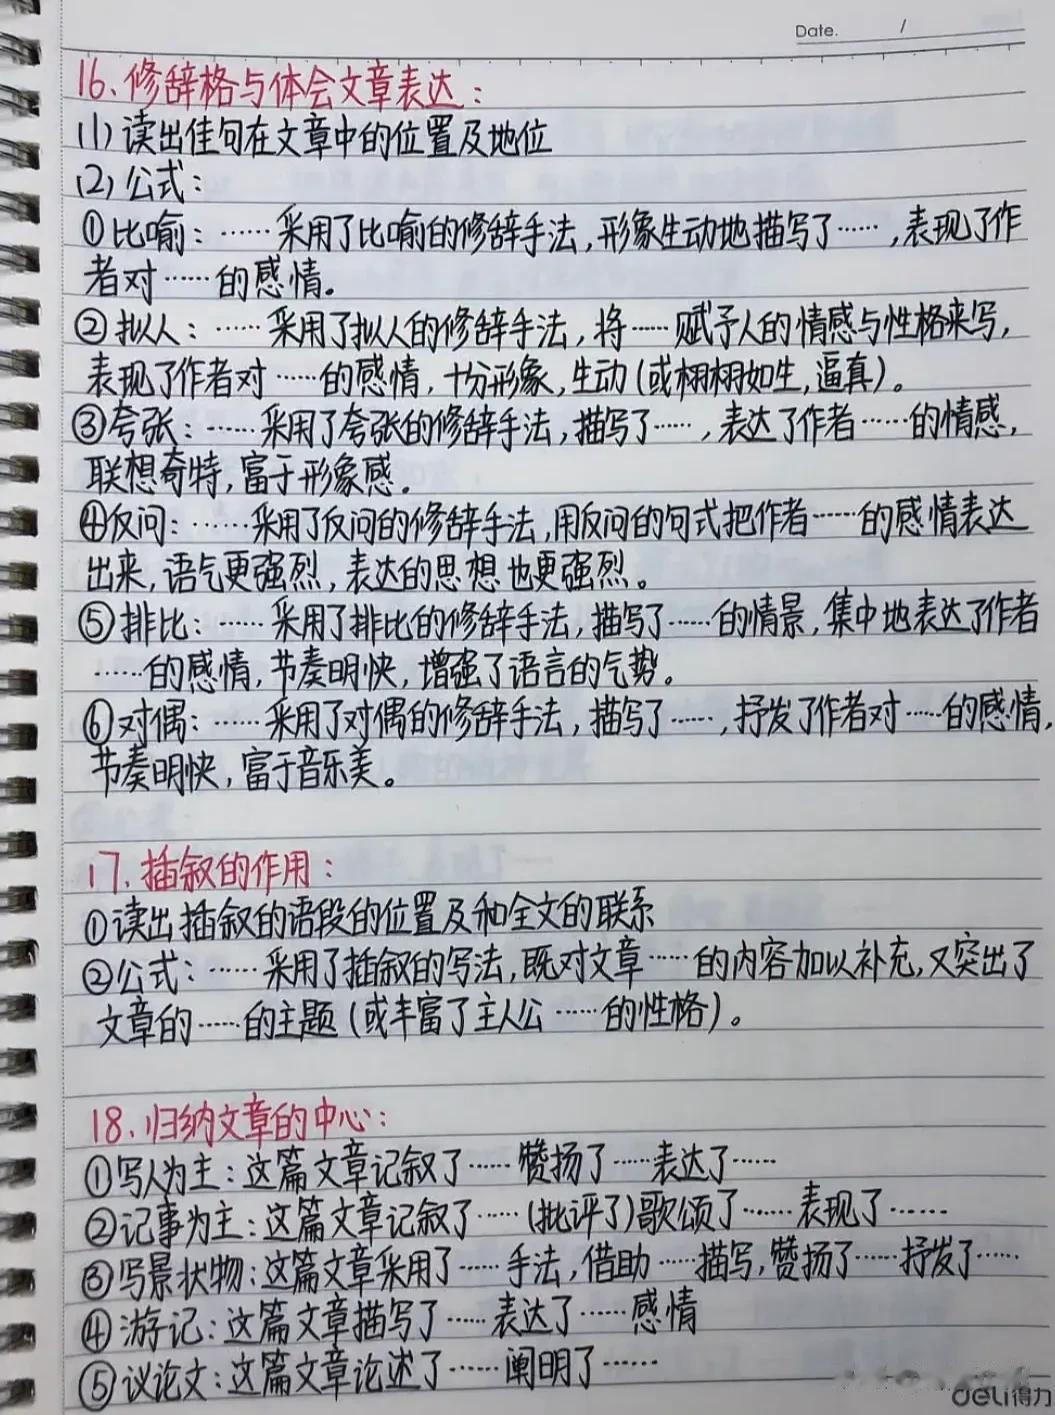 Date. /
16.修辞格与体会文章表达：
(1)读出佳句在文章中的位置及地位
(2)公式：
①比喻：……采用了比喻的修辞手法，形象生动地描写了……，表现了作
者对……的感情。
②拟人：……采用了拟人的修辞手法，将……赋予人的情感与性格来写，
表现了作者对……的感情，十分形象，生动(或栩栩如生，逼真)。
③夸张：……采用了夸张的修辞手法，描写了……，表达了作者……的情感，
联想奇特，富于形象感。
④反问：……采用了反问的修辞手法，用反问的句式把作者……的感情表达
出来，语气更强烈，表达的思想也更强烈。
⑤排比：……采用了排比的修辞手法，描写了……的情景，集中地表达了作者
……的感情，节奏明快，增强了语言的气势。
⑥对偶：……采用了对偶的修辞手法，描写了……，抒发了作者对……的感情，
节奏明快，富于音乐美。
17.插叙的作用：
①读出插叙的语段的位置及和全文的联系
②公式：……采用了插叙的写法，既对文章……的内容加以补充，又突出了
文章的……的主题(或丰富了主人公……的性格)。
18.归纳文章的中心：
①写人为主：这篇文章记叙了……赞扬了……表达了……
②记事为主：这篇文章记叙了……(批评了)歌颂了……表现了……
③写景状物：这篇文章采用了……手法，借助……描写，赞扬了……抒发了……
④游记：这篇文章描写了……表达了……感情
⑤议论文：这篇文章论述了……阐明了……
deli得力